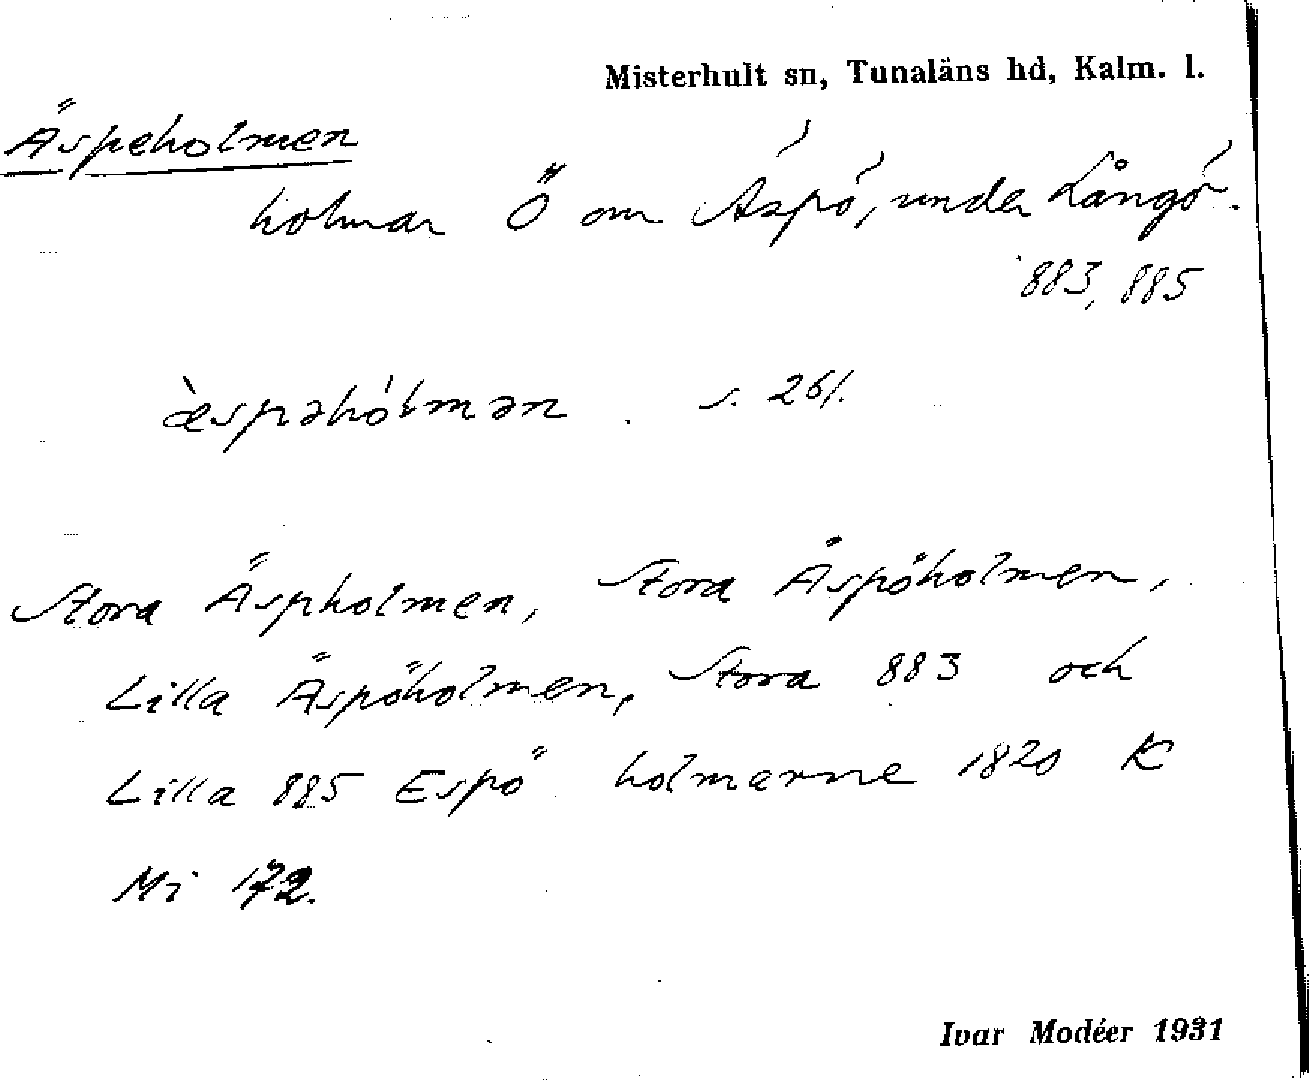 Misterhult sn, Tunaläns hd, Kalm. l.
Äspeholmen
holmar Ö om Äspö, under Långö.
883, 885
æ̀spəhólmən . s. 261.
Stora Äspholmen, Stora Äspöholmen,
Lilla Äspöholmen, Stora 883 och
Lilla 885 Espö holmarne 1820 K
Mi 172.
Ivar Modéer 1931